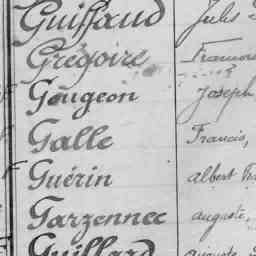 Guiffaud Jules
Grégoire
Gougeon Joseph
Galle Francis,
Guérin Albert
Garzennec auguste,
Guillard auguste